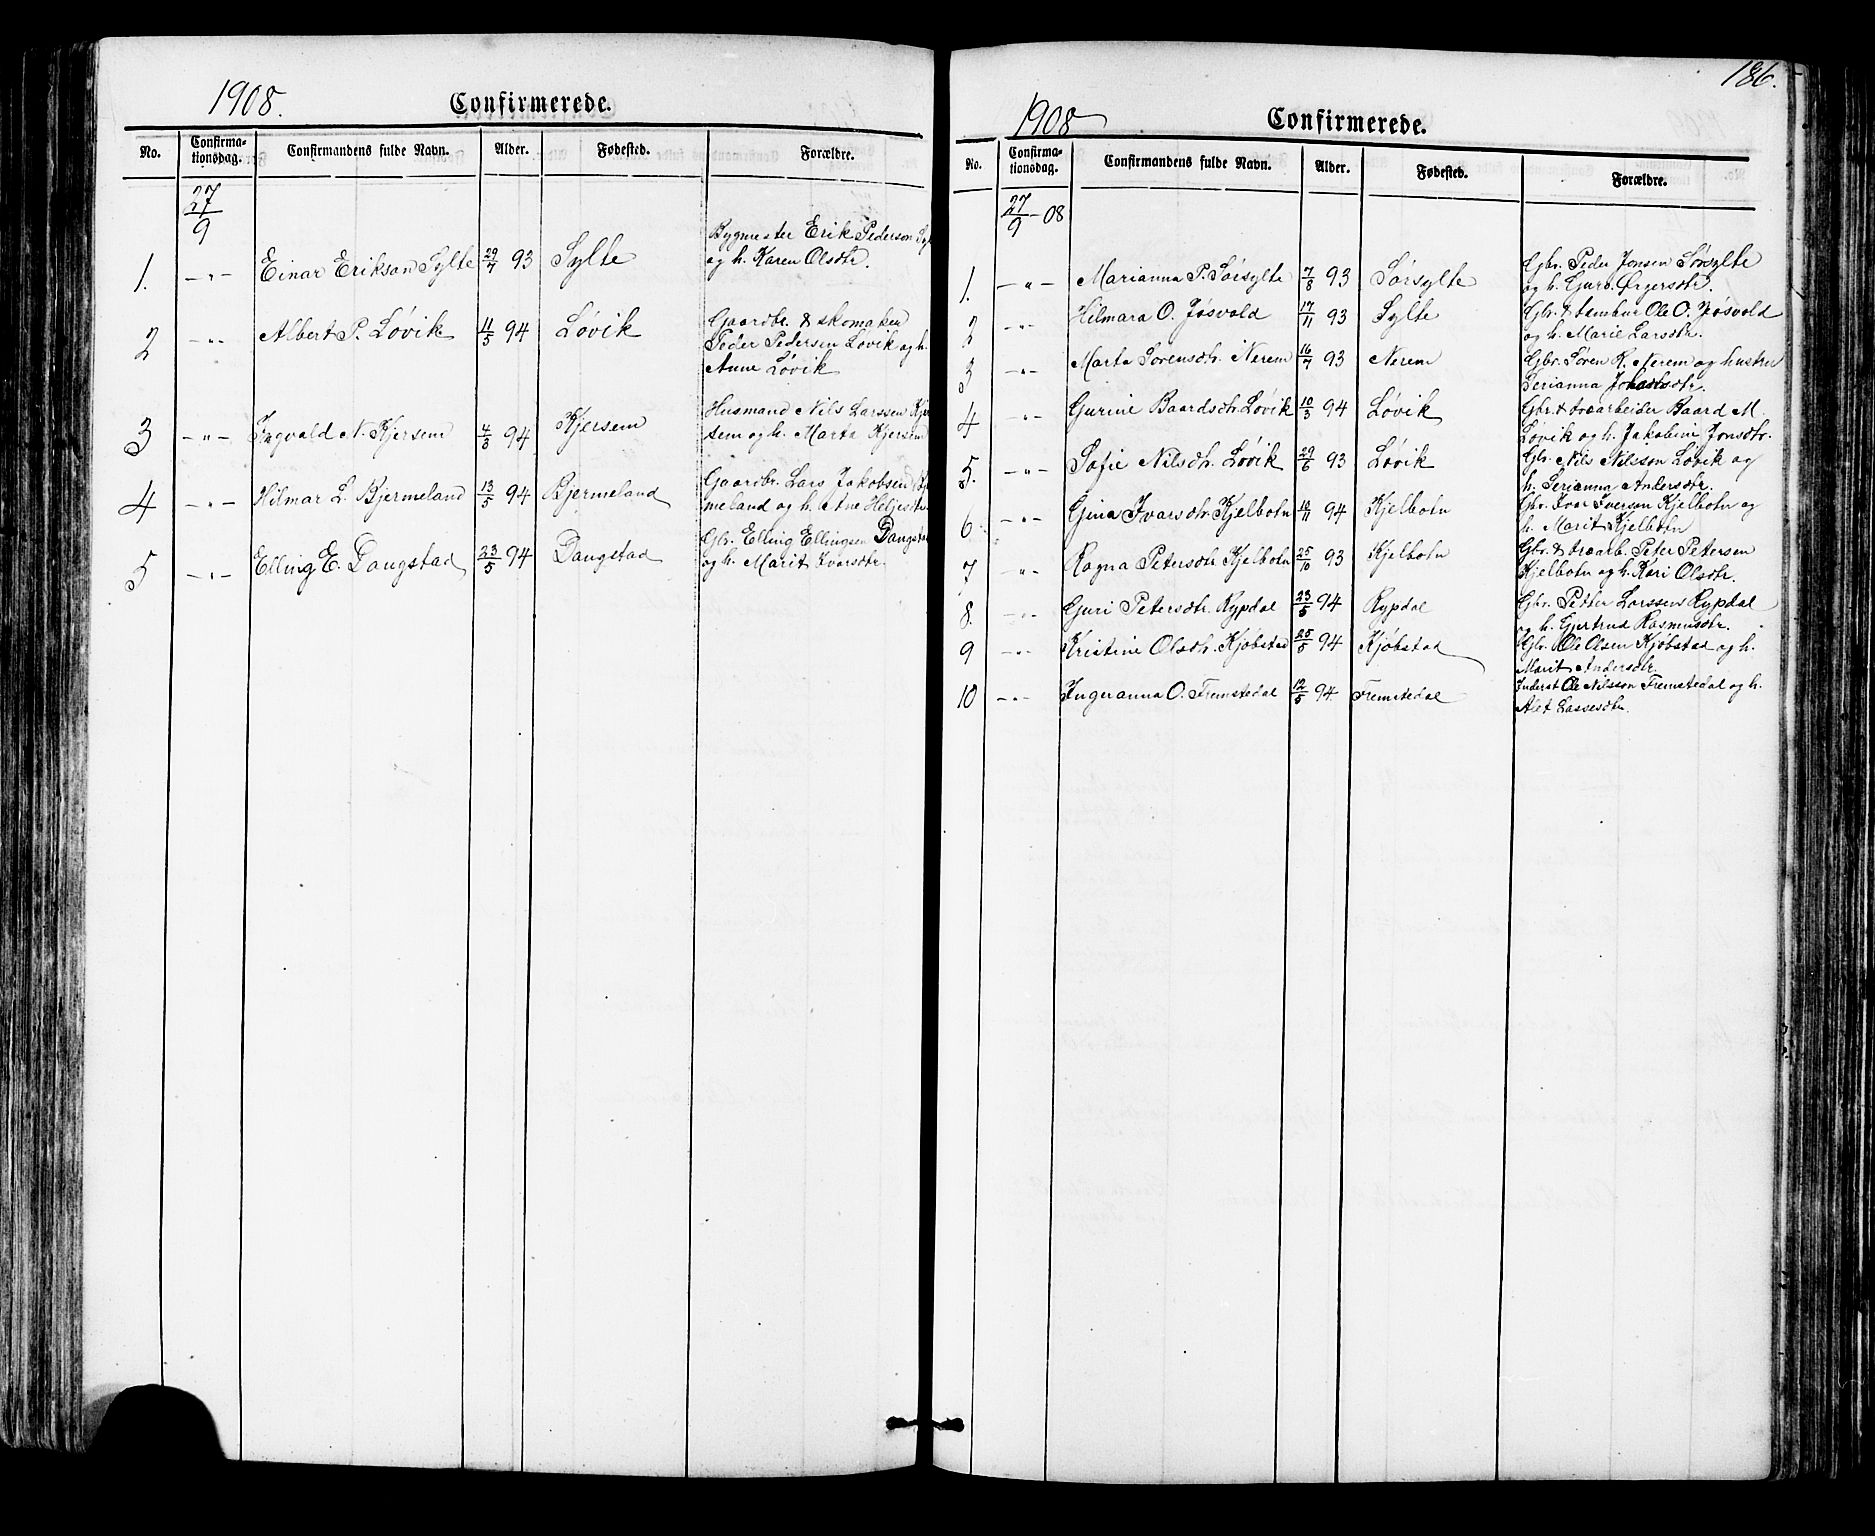 1908.
Confirmerede.
No. Confirma-tionsdag. Confirmandens fulde Navn. Alder. Fødested. Forældre.
27/9
1. -"- Einar Erikson Sylte 29/7 93 Sylte Bygmester Erik Pederson
og h. Karen Olsdtr.
2 -"- Albert P. Løvik 11/5 94 Løvik Gaardbr. & skomaker
Peder Pedersen Løvik og h.
Anne Løvik
3 -"- Ingvald N. Kjersem 4/8 94 Kjersem Husmand Nils Larssen Kjer
sem og h. Marta Kjersem
4 -"- Hilmar L. Bjermeland 13/5 94 Bjermeland Gaardbr. Lars Jakobsen
meland og h. Ane
5 -"- Elling E. Daugstad 23/5 94 Daugstad Gbr. Elling Ellingsen Daugstad
og h. Marit Ivarsdtr.
186.
1908
Confirmerede.
No. Confirma-tionsdag. Confirmandens fulde Navn. Alder. Fødested. Forældre.
27/9 - 08
1. -"- Marianna P. Sørsylte 7/8 93 Sørsylte Gbr. Peder Jonsen Sørsylte
og h. Guro Ørgersdtr.
2 -"- Hilmara O. Jøsvold 17/11 93 Sylte Gbr. & tambur Ole O. Jøsvold
og h. Marie Larsdtr.
3 -"- Marta Sørensdtr. Nerem 16/7 93 Nerem Gbr. Søren K. Nerem og hustru
Serianna
4 -"- Gurine Baardsdtr. Løvik 10/3 94 Løvik Gbr. & træarbeider Baard M.
Løvik og h. Jakobine Jonsdtr.
5. -"- Sofie Nilsdtr. Løvik 29/6 93 Løvik Gbr. Nils Nilsson Løvik og
h. Serianna Andersdtr.
6 -"- Gina Ivarsdtr. Kjelbotn 16/11 94 Kjelbotn Gbr. Ivar Iverson Kjelbotn og
h. Marit Kjelbotn
7 -"- Ragna Petersdtr. Kjelbotn 25/10 93 Kjelbotn Gbr. & træarb. Peter Petersen
Kjelbotn og h. Kari Olsdtr.
8. -"- Guri Petersdtr. Rypdal 23/5 94 Rypdal Gbr. Petter Larssen Rypdal
og h. Gjertrud Rasmusdtr.
9 -"- Kristine Olsdtr. Kjøbstad 25/5 94 Kjøbstad Gbr. Ole Olsen Kjøbstad og h.
Marit Andersdtr.
10 -"- Ingeranna O. Fremstedal 12/5 94 Fremstedal Inderst Ole Nilsson Fremstedal og h.
Alet Lassesdtr.